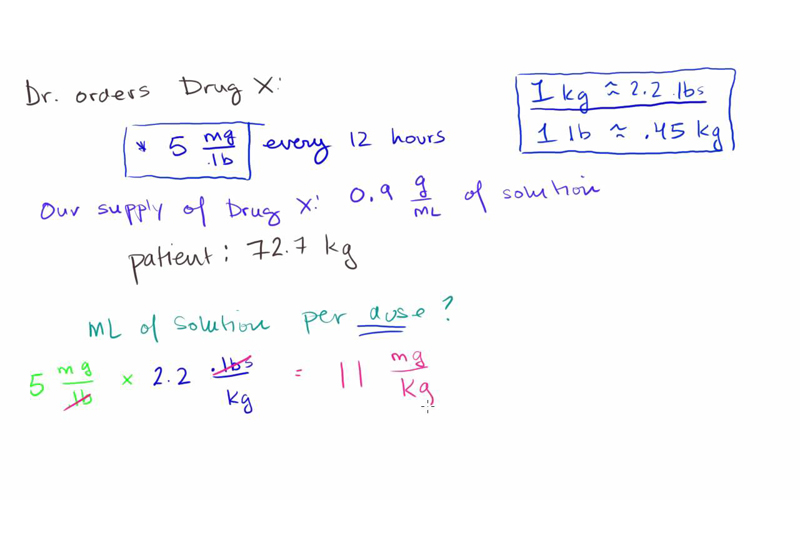 Dr. orders Drug X:
1 kg ≈ 2.2 .lbs
1 lb ≈ .45 kg
* 5 mg/.lb every 12 hours
Our supply of Drug X: 0.9 g/mL of solution
patient: 72.7 kg
mL of solution per dose?
5 mg/lb × 2.2 .lbs/kg = 11 mg/kg